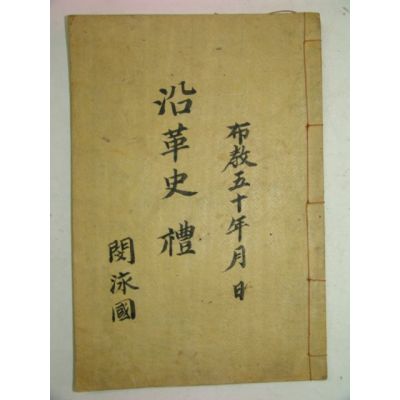 布敎五十年月日
沿革史禮
閔泳國